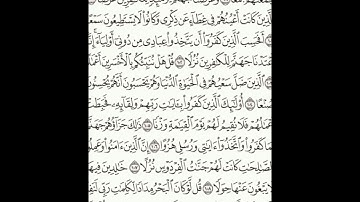 ٱلَّذِينَ كَانَتْ أَعْيُنُهُمْ فِى غِطَآءٍ عَن ذِكْرِى وَكَانُوا۟ لَا يَسْتَطِيعُونَ سَمْعًا
أَفَحَسِبَ ٱلَّذِينَ كَفَرُوٓا۟ أَن يَتَّخِذُوا۟ عِبَادِى مِن دُونِىٓ أَوْلِيَآءَ إِنَّآ
أَعْتَدْنَا جَهَنَّمَ لِلْكَٰفِرِينَ نُزُلًا ۝١٠٢ قُلْ هَلْ نُنَبِّئُكُم بِٱلْأَخْسَرِينَ أَعْمَٰلًا
ٱلَّذِينَ ضَلَّ سَعْيُهُمْ فِى ٱلْحَيَوٰةِ ٱلدُّنْيَا وَهُمْ يَحْسَبُونَ أَنَّهُمْ يُحْسِنُونَ
صُنْعًا ۝١٠٤ أُو۟لَٰٓئِكَ ٱلَّذِينَ كَفَرُوا۟ بِـَٔايَٰتِ رَبِّهِمْ وَلِقَآئِهِۦ فَحَبِطَتْ
أَعْمَٰلُهُمْ فَلَا نُقِيمُ لَهُمْ يَوْمَ ٱلْقِيَٰمَةِ وَزْنًا ۝١٠٥ ذَٰلِكَ جَزَآؤُهُمْ جَهَنَّمُ
بِمَا كَفَرُوا۟ وَٱتَّخَذُوٓا۟ ءَايَٰتِى وَرُسُلِى هُزُوًا ۝١٠٦ إِنَّ ٱلَّذِينَ ءَامَنُوا۟ وَعَمِلُوا۟
ٱلصَّٰلِحَٰتِ كَانَتْ لَهُمْ جَنَّٰتُ ٱلْفِرْدَوْسِ نُزُلًا ۝١٠٧ خَٰلِدِينَ فِيهَا
لَا يَبْغُونَ عَنْهَا حِوَلًا ۝١٠٨ قُل لَّوْ كَانَ ٱلْبَحْرُ مِدَادًا لِّكَلِمَٰتِ رَبِّى لَنَفِدَ